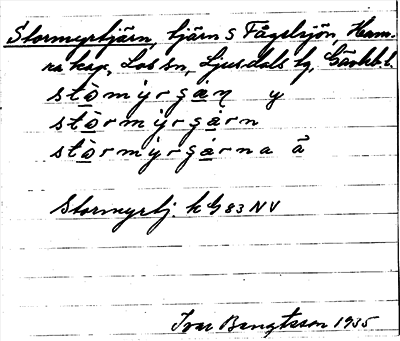 Stormyrtjärn, tjärn S Fågelsjön, Hamra kap., Los sn, Ljusdals tg, Gävleb. l.
stòmýrgàṇ y
stòrmýrgàrn
stòrmýrgàrna ä
Stormyrtj. k G 83 NV
Ivar Bengtsson 1935